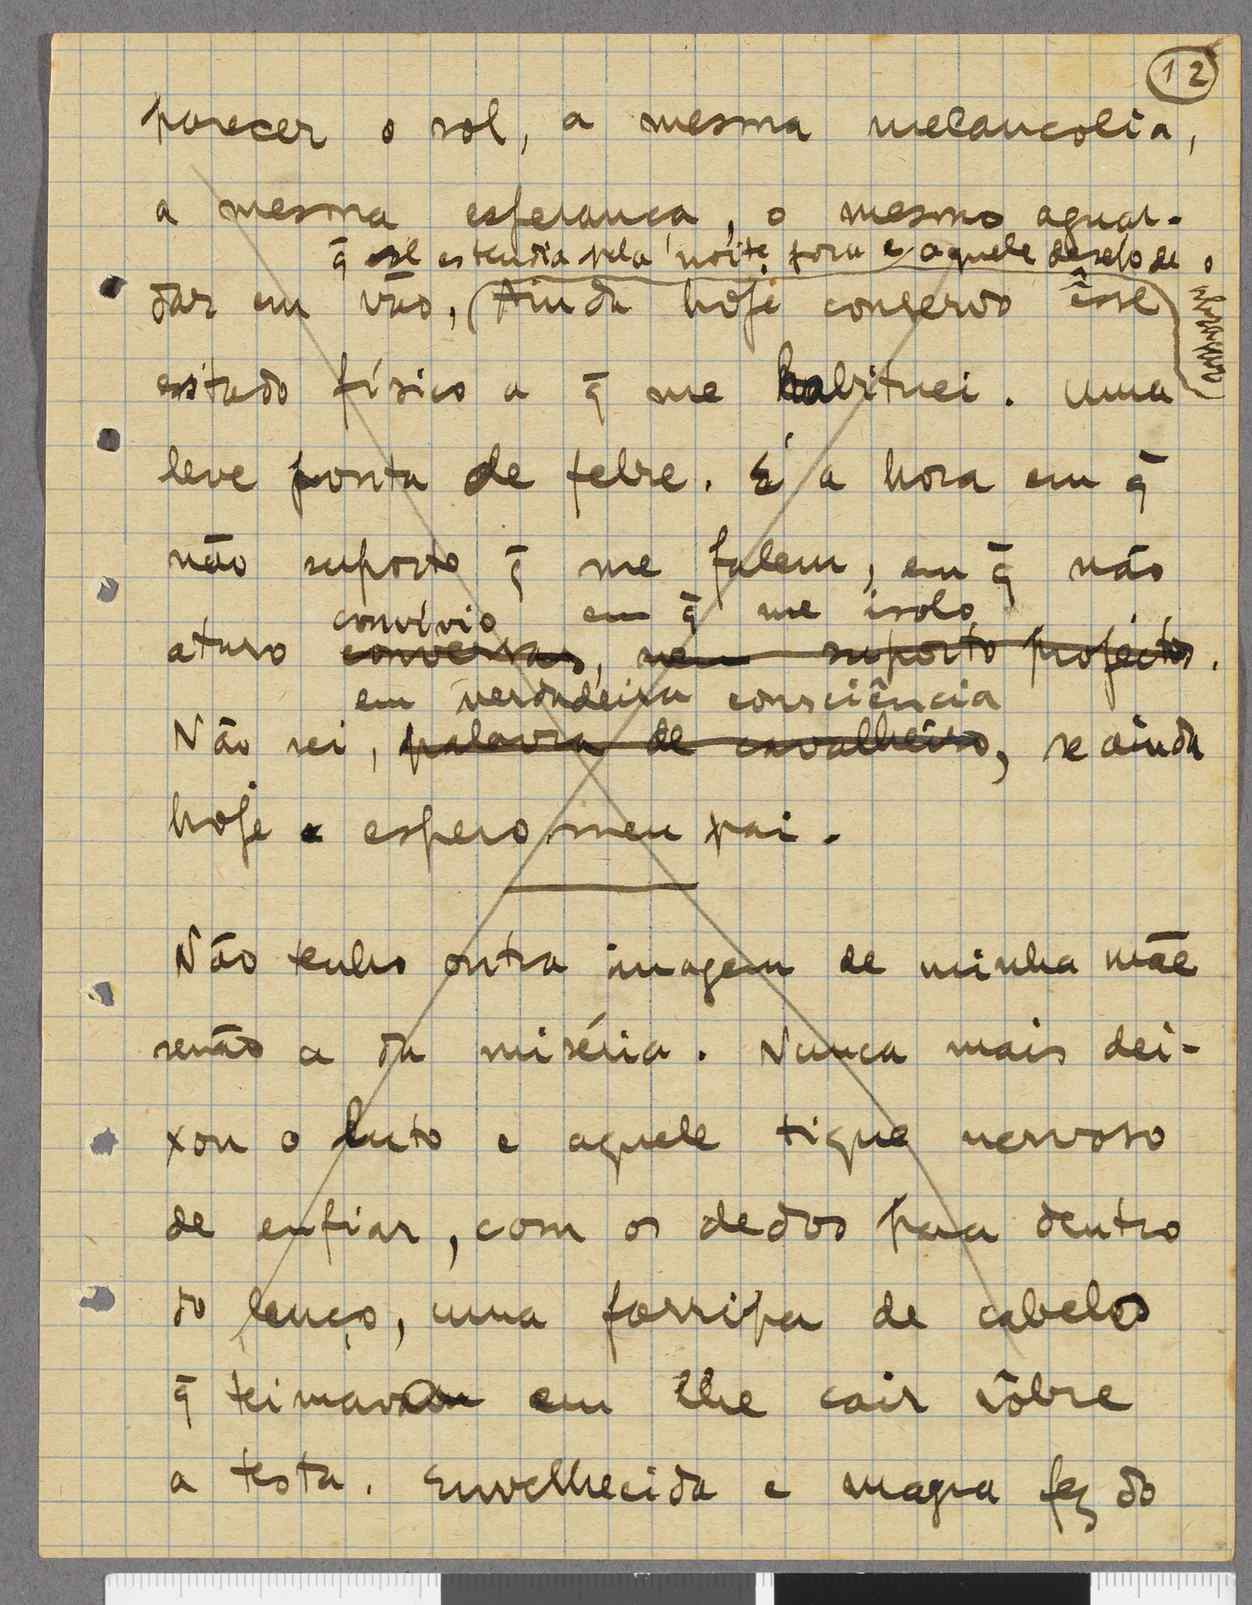 12
parecer o sol, a mesma melancolia,
a mesma esperança, o mesmo aguar-
q̄ se estendia pela noite fora e aquele desejo de o
dar em vão, (Ainda hoje conservo êsse
estado físico a q̄ me habituei. Uma
leve ponta de febre. É a hora em q̄
não suporto q̄ me falem, em q̄ não
convívio em q̄ me isolo
aturo conversas, nem suporto projectos.
em verdadeira consciência
Não sei, palavra de cavalheiro, se ainda
hoje espero meu pai.
Não tenho outra imagem de minha mãe
senão a da miséria. Nunca mais dei-
xou o luto e aquele tique nervoso
de enfiar, com os dedos para dentro
do lenço, uma farripa de cabelos
q̄ teimavam em lhe cair sôbre
a testa. Envelhecida e magra fez do